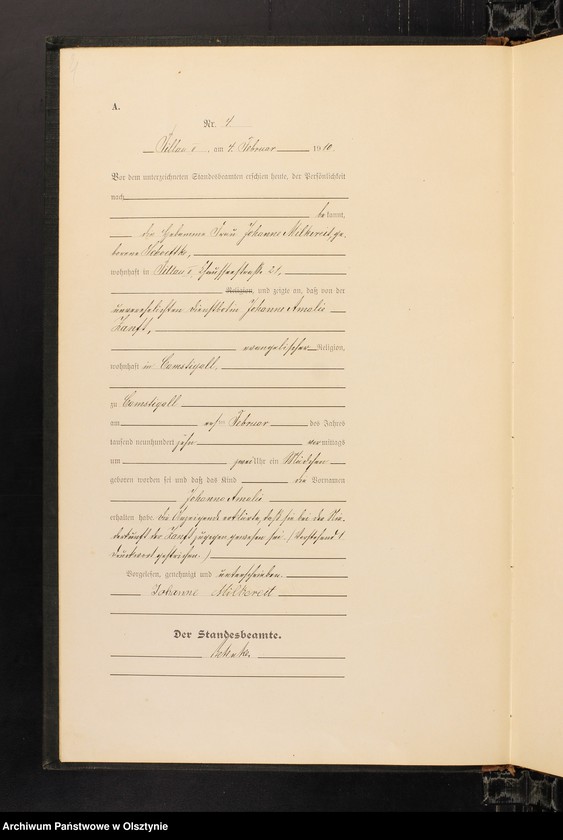 A.
Nr. 4
Pillau I. am 4. Februar 1910
Vor dem unterzeichneten Standesbeamten erschien heute, der Persönlichkeit
nach
bekannt,
die Hebamme Frau Johanne Milkereit, ge-
borene
wohnhaft in Pillau I, Chausseestraße 21,
Religion, und zeigte an, daß von der
unverehelichten Dienstbotin Johanne Amalie
Zanft,
evangelischer Religion,
wohnhaft in Camstigall,
zu Camstigall
am ersten Februar des Jahres
tausend neunhundert zehn vormittags
um zwei Uhr ein Mädchen
geboren worden sei und daß das Kind die Vornamen
Johanne Amalie
erhalten habe. Die Anzeigende erklärte, daß sie bei der Nie-
derkunft der Zanft zugegen gewesen sei. (Vorstehend 1
Druckwort gestrichen.)
Vorgelesen, genehmigt und unterschrieben.
Johanne Milkereit
Der Standesbeamte.
Archiwum Państwowe w Olsztynie